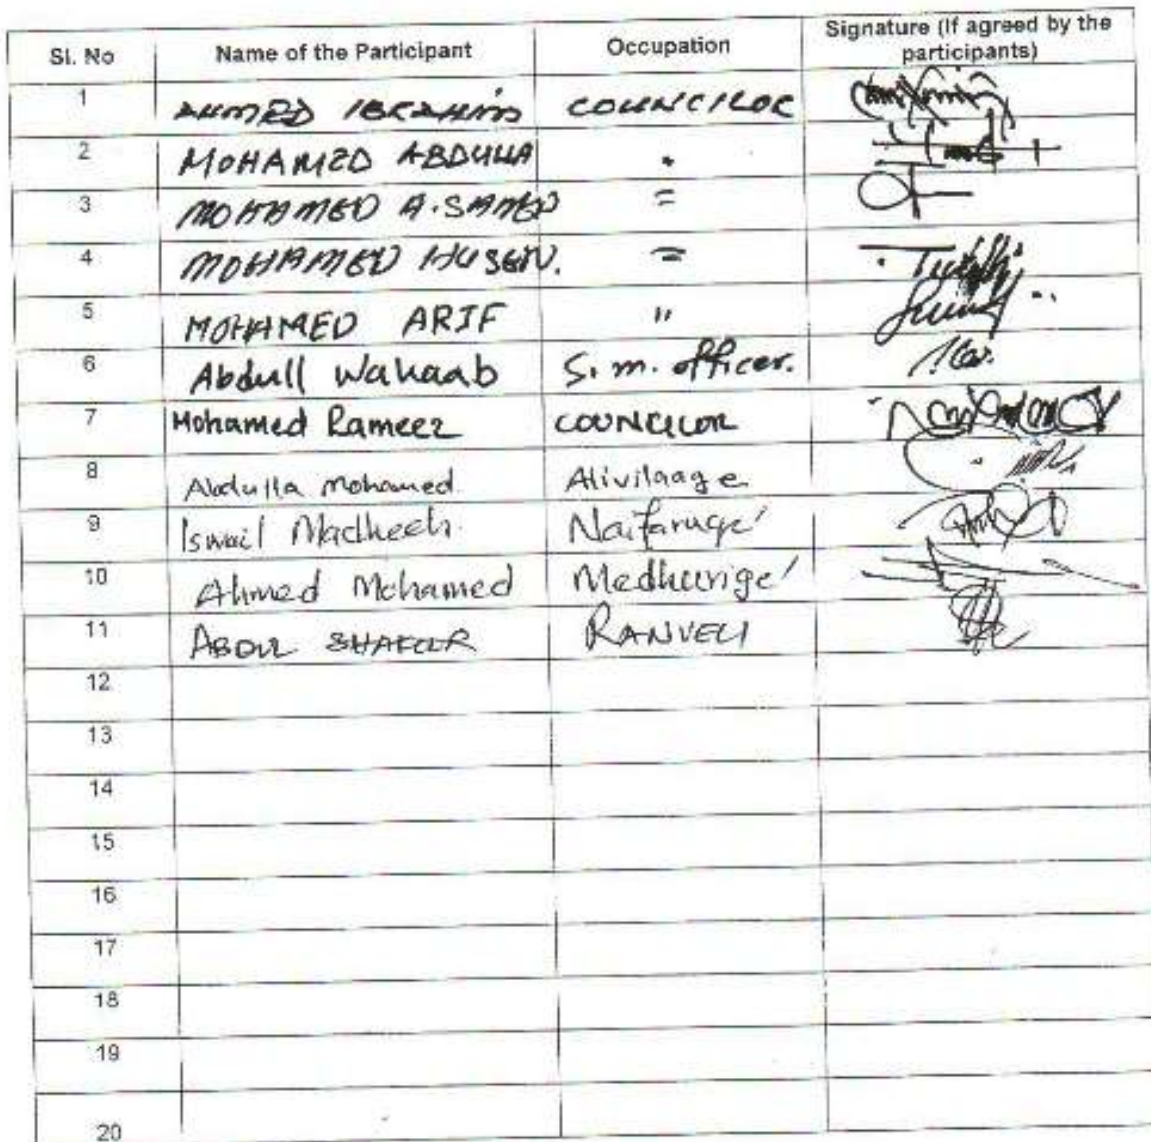 Sl. No Name of the Participant Occupation Signature (If agreed by the participants)
1 AHMED IBRAHIM COUNCILOR
2 MOHAMED ABDULLA "
3 MOHAMED A. SAMED =
4 MOHAMED HUSEN. =
5 MOHAMED ARIF "
6 Abdull Wahaab S. m. officer.
7 Mohamed Rameez COUNCILOR
8 Abdulla Mohamed Alivilaage
9 Ismail Madheeh Naifaruge
10 Ahmed Mohamed Medhuvige
11 ABDUL SHAKOOR RANVELI
12
13
14
15
16
17
18
19
20